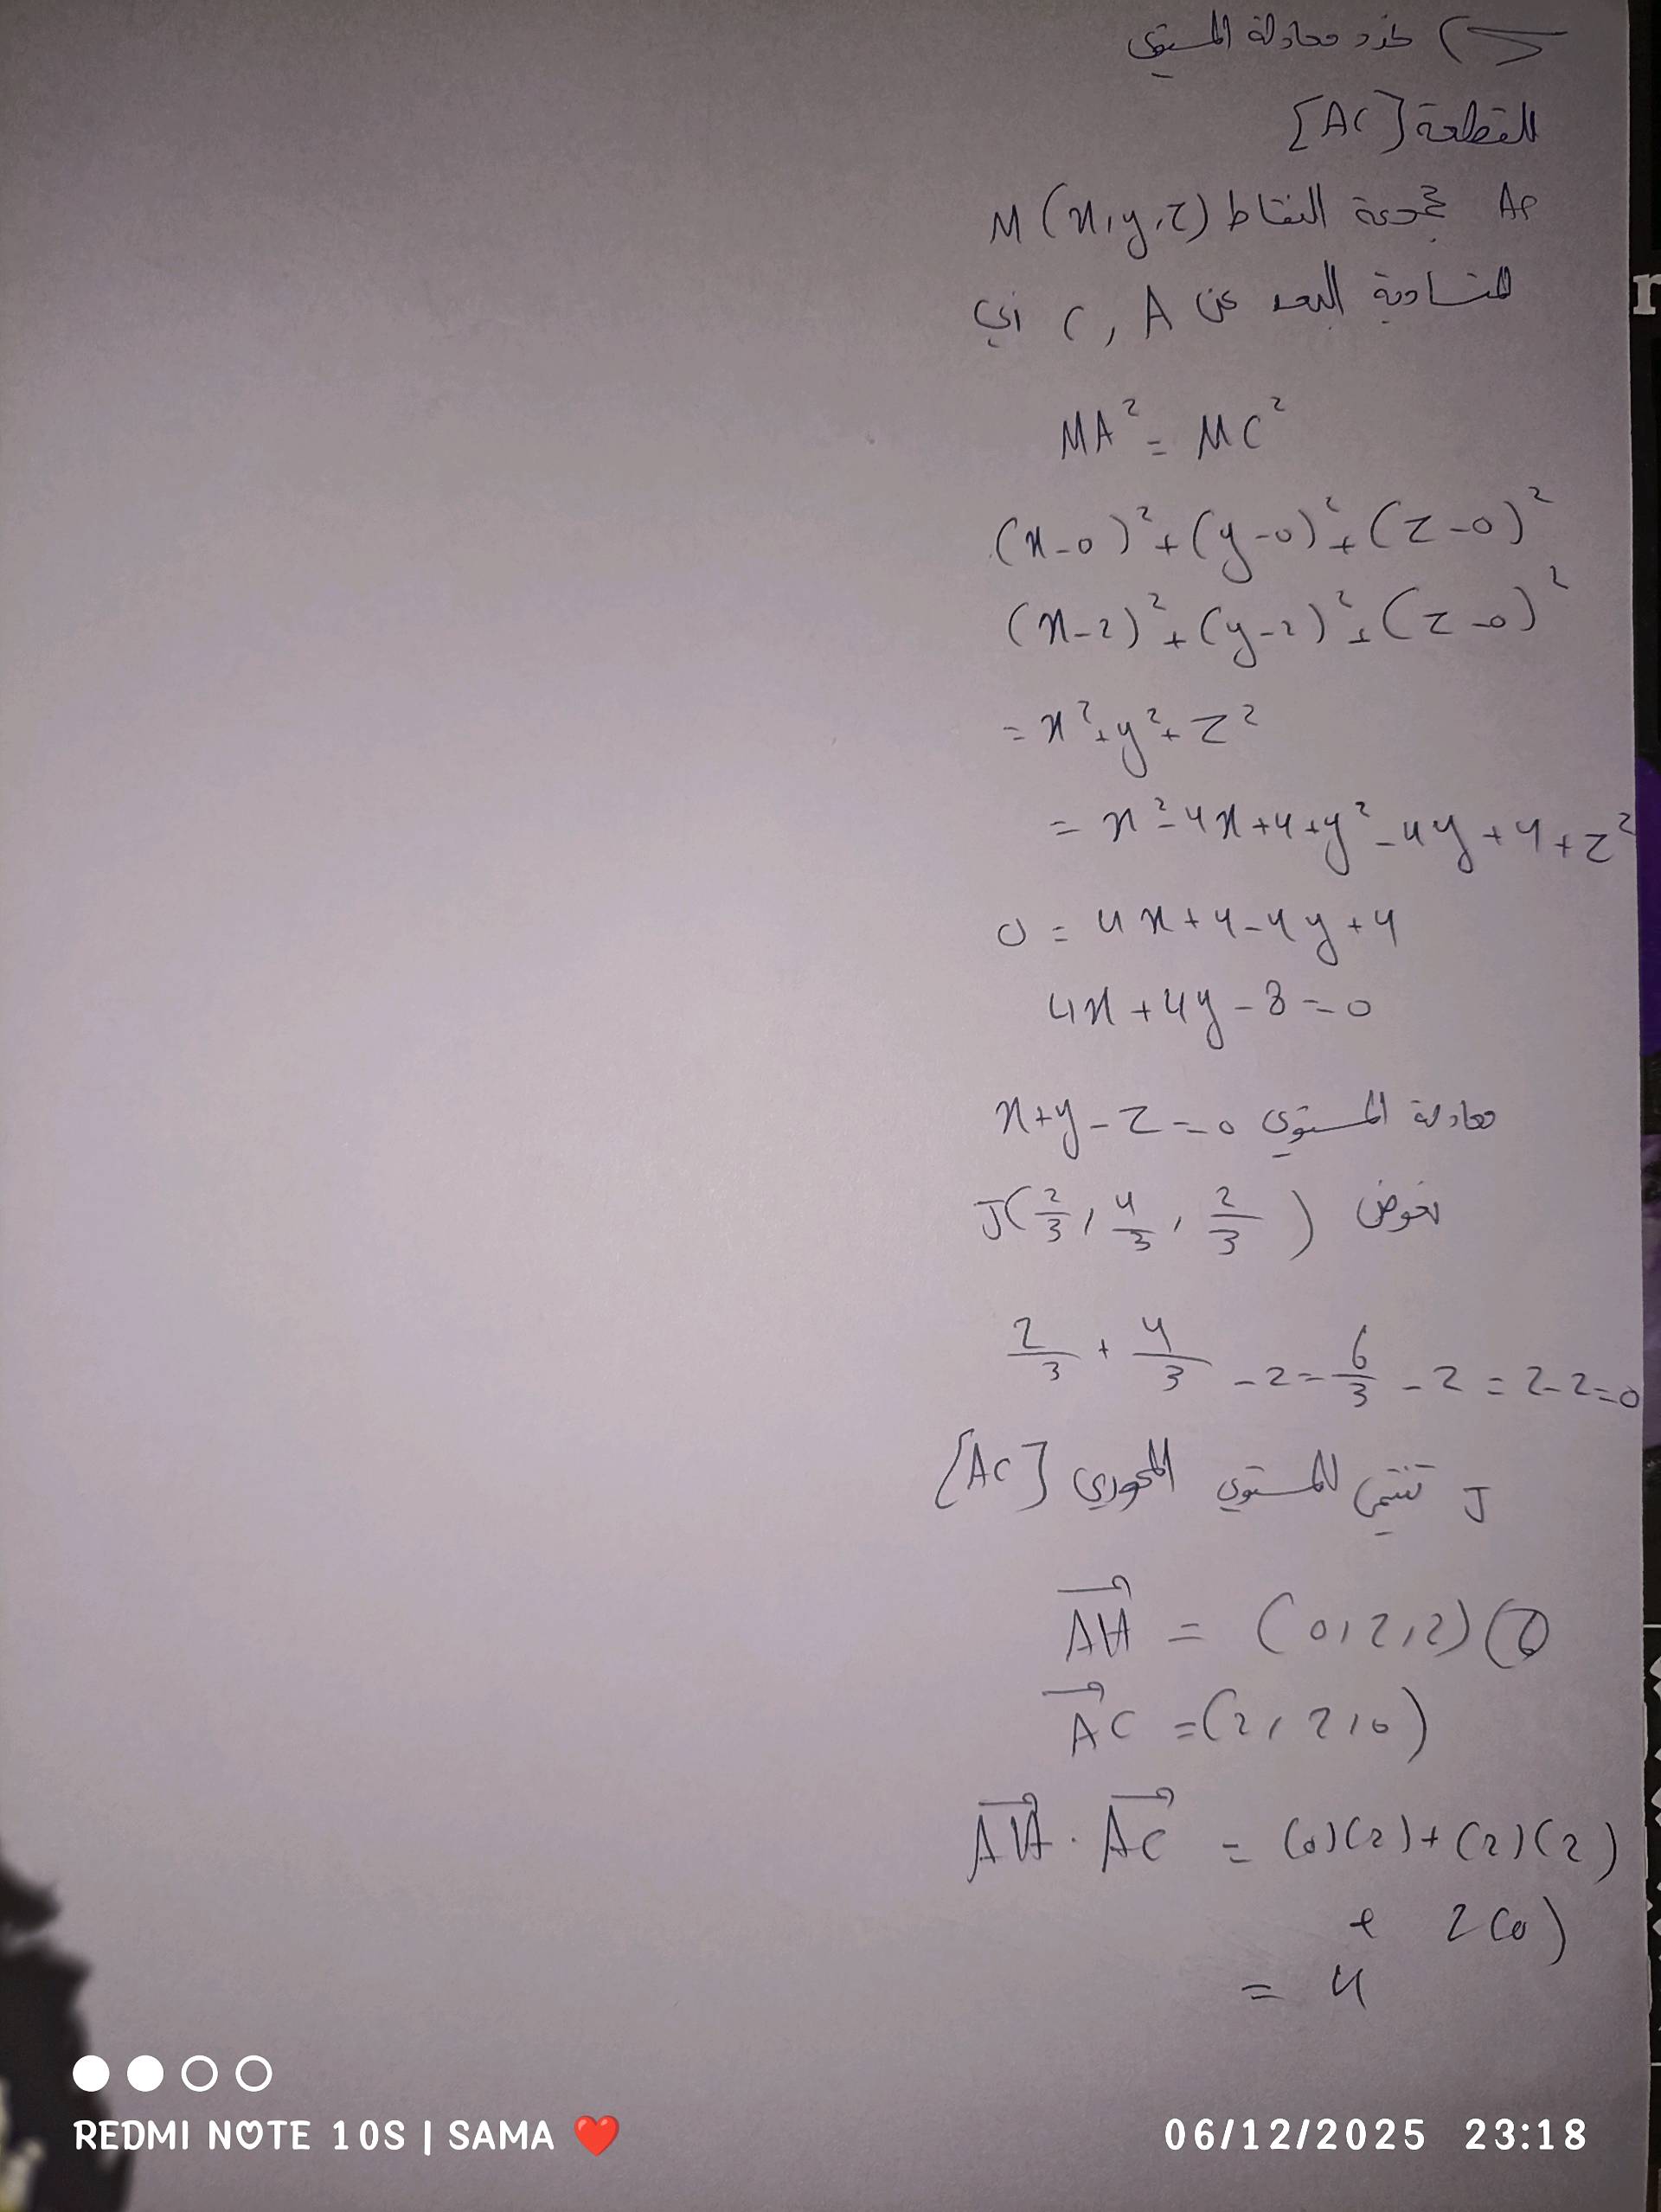 5) نحدد معادلة المستوي
للقطعة [AC]
مجموعة النقاط M(x,y,z)
المتساوية البعد عن A , C أي
MA² = MC²
(x-0)²+(y-0)²+(z-0)²
(x-2)²+(y-2)²+(z-0)²
= x²+y²+z²
= x²-4x+4+y²-4y+4+z²
0 = 4x+4-4y+4
4x+4y-8=0
معادلة المستوي x+y-2=0
نعوض J(2/3, 4/3, 2/3)
2/3 + 4/3 -2= 6/3 -2 = 2-2=0
J تنتمي للمستوي المحوري [AC]
6) AH = (0,2,2)
AC =(2,2,0)
AH . AC = (0)(2)+(2)(2)
+ 2(0)
= 4
REDMI NOTE 10S | SAMA ❤️
06/12/2025 23:18
r